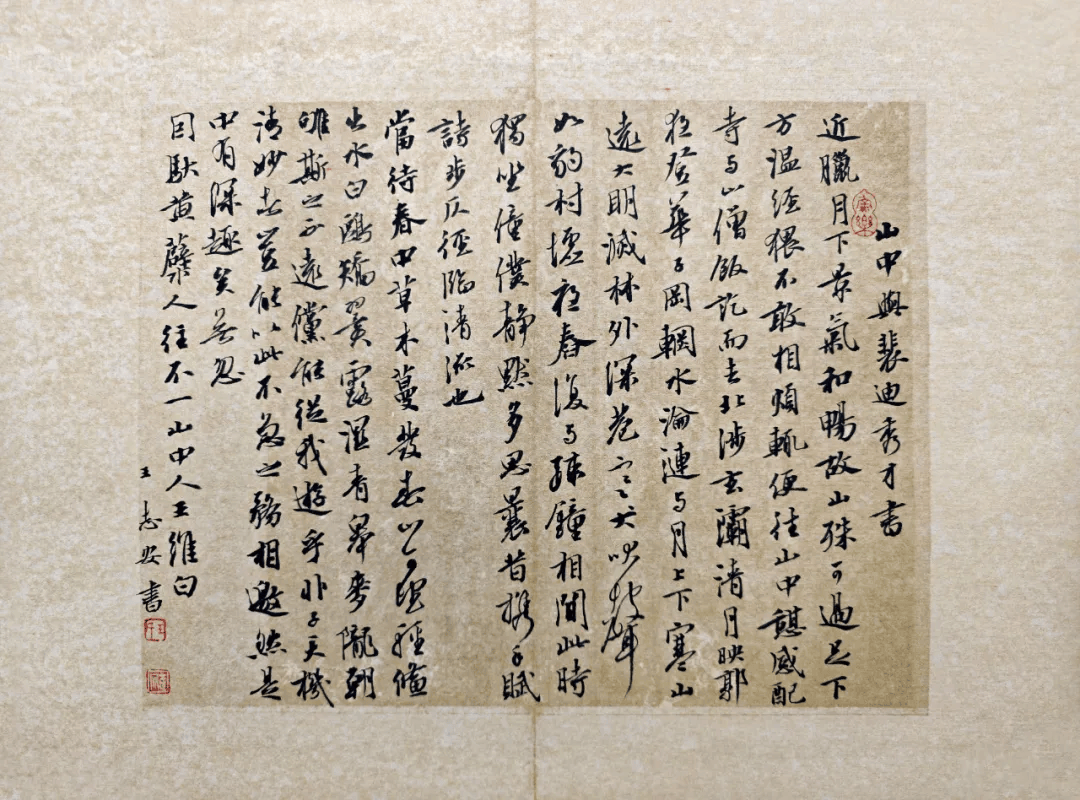 山中與裴迪秀才書
近臘月下景氣和暢故山殊可過足下
方溫經猥不敢相煩輒便往山中憇感配
寺与山僧飯訖而去北涉玄灞清月映郭
夜登華子岡輞水淪漣与月上下寒山
遠火明滅林外深巷寒犬吠聲
如豹村墟夜舂復与疎鐘相間此時
獨坐僮僕靜默多思曩昔携手賦
詩步仄徑臨清流也
當待春中草木蔓發春山可望輕鯈
出水白鷗矯翼露濕青皋麥隴朝
雊斯之不遠儻能從我遊乎非子天機
清妙者豈能以此不急之務相邀然是
中有深趣矣無忽
因馱黃蘗人往不一山中人王維白
王志安書